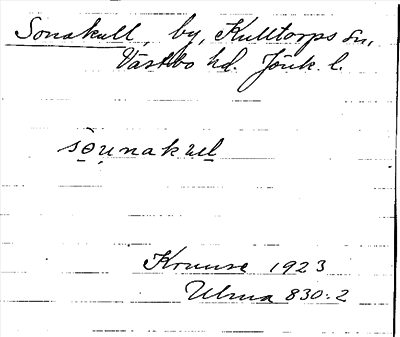 Sonakull, by, Kulltorps sn,
Västbo hd. Jönk. l.
sɵunakul
Kruuse 1923
Ulma 830:2